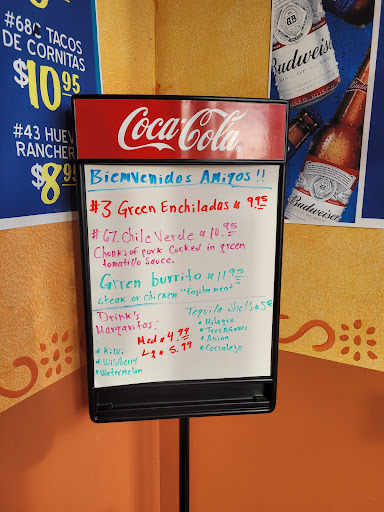 #68c TACOS
DE CORNITAS
$10.95
#43 HUEV
RANCHER
$8.95
Budweiser
Budweiser
Coca-Cola
Bienvenidos Amigos !!
#3 Green Enchiladas $ 9.95
#67. Chile Verde $ 10.95
Chunks of pork Cocked in green
tomatillo Sauce.
Green burrito $ 11.95
steak or chicken "fajita meat"
Drink's
Margaritas:
Med $ 4.99
Lg $ 5.99
* Kiwi
* Wildberry
* Watermelon
Tequila Shot's $ 5
* Milagro
* Tres Agaves
* Avion
* Corralejo